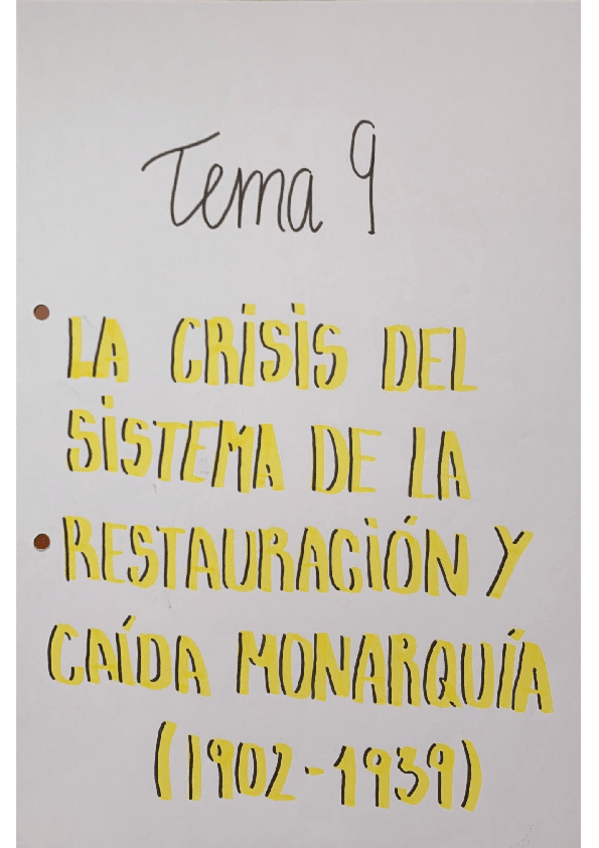 Tema 9
LA CRiSiS DEL
SiSTEMA DE LA
RESTAURACiÓN Y
CAÍDA MONARQUÍA
(1902-1939)